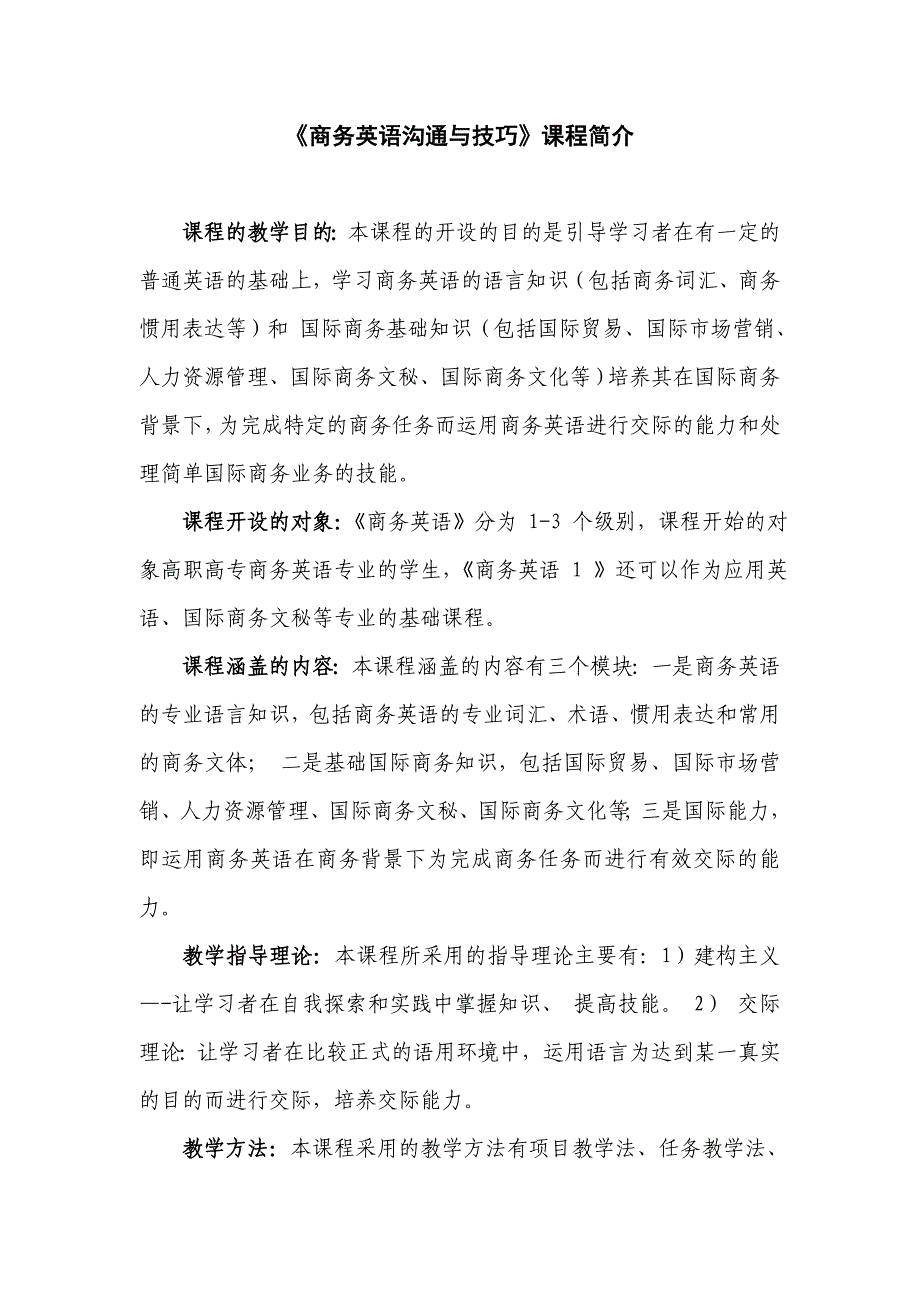 《商务英语沟通与技巧》课程简介
课程的教学目的：本课程的开设的目的是引导学习者在有一定的
普通英语的基础上，学习商务英语的语言知识（包括商务词汇、商务
惯用表达等）和 国际商务基础知识（包括国际贸易、国际市场营销、
人力资源管理、国际商务文秘、国际商务文化等）培养其在国际商务
背景下，为完成特定的商务任务而运用商务英语进行交际的能力和处
理简单国际商务业务的技能。
课程开设的对象：《商务英语》分为 1-3 个级别，课程开始的对
象高职高专商务英语专业的学生，《商务英语 1 》还可以作为应用英
语、国际商务文秘等专业的基础课程。
课程涵盖的内容：本课程涵盖的内容有三个模块：一是商务英语
的专业语言知识，包括商务英语的专业词汇、术语、惯用表达和常用
的商务文体； 二是基础国际商务知识，包括国际贸易、国际市场营
销、人力资源管理、国际商务文秘、国际商务文化等；三是国际能力，
即运用商务英语在商务背景下为完成商务任务而进行有效交际的能
力。
教学指导理论：本课程所采用的指导理论主要有：1）建构主义
—-让学习者在自我探索和实践中掌握知识、 提高技能。 2） 交际
理论：让学习者在比较正式的语用环境中，运用语言为达到某一真实
的目的而进行交际，培养交际能力。
教学方法：本课程采用的教学方法有项目教学法、任务教学法、